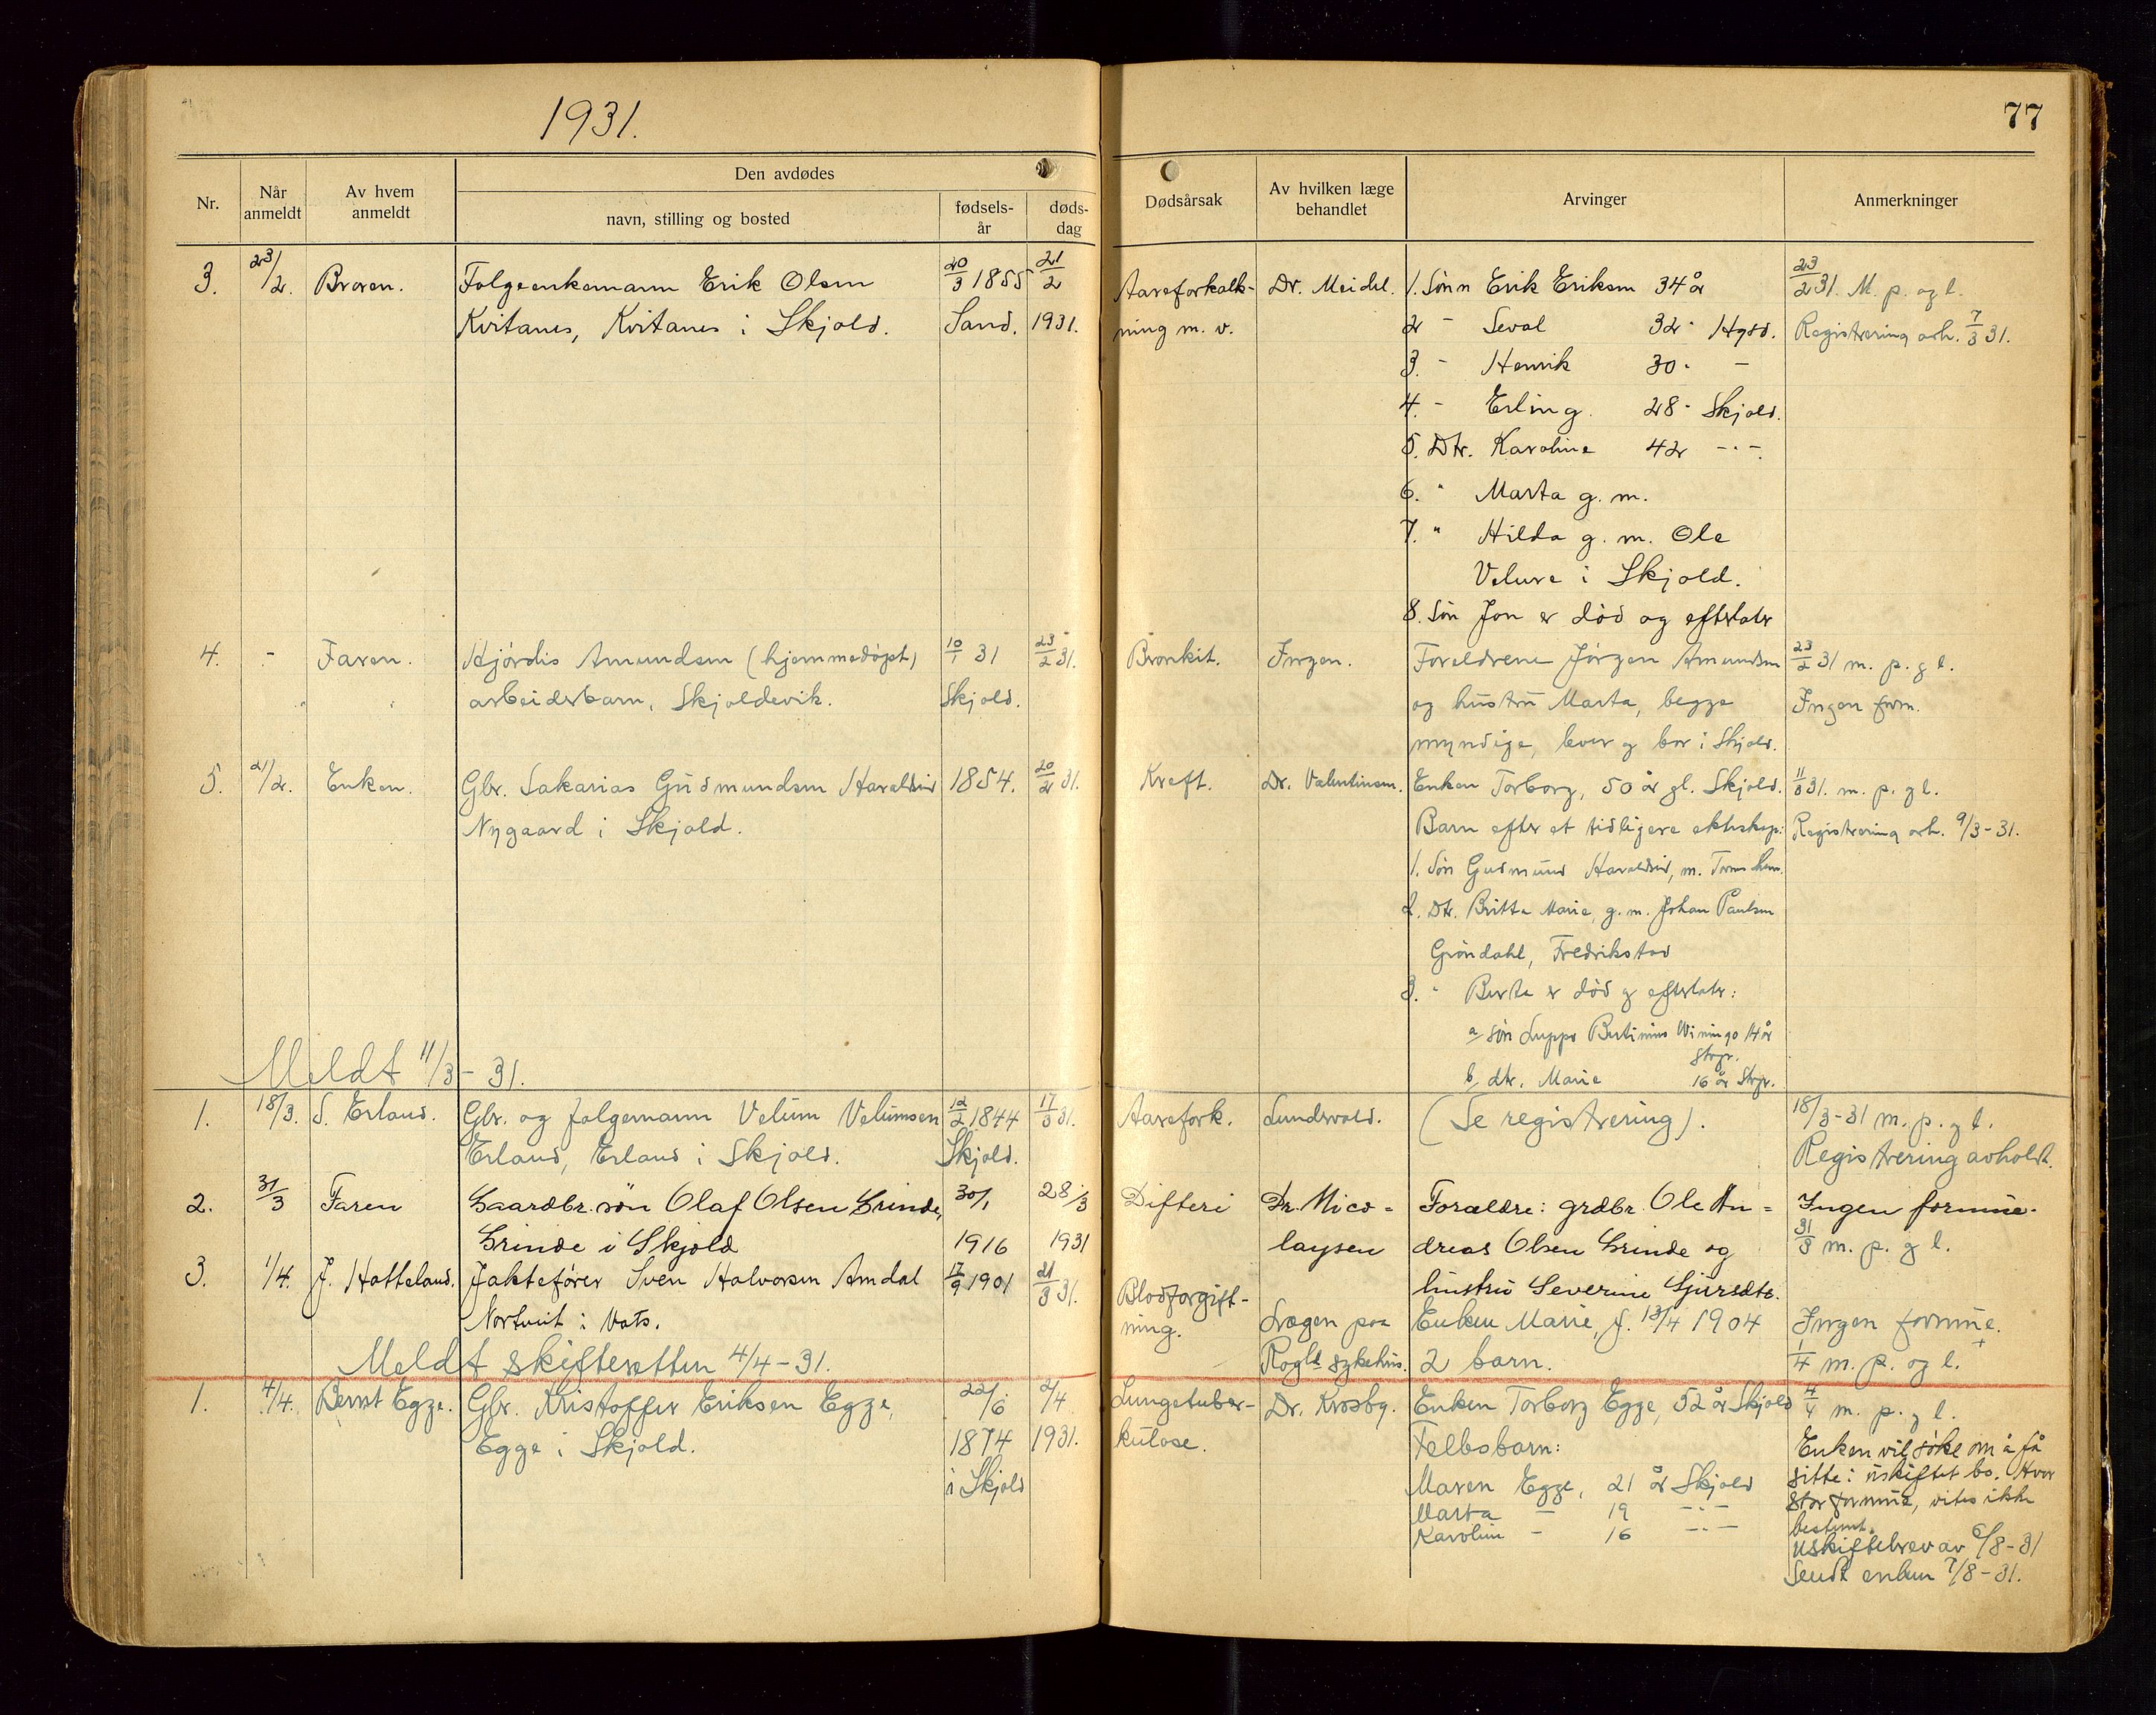 1931.
77
Den avdødes
Nr.
Når anmeldt
Av hvem anmeldt
navn, stilling og bosted
fødsels-år
døds-dag
Dødsårsak
Av hvilken læge behandlet
Arvinger
Anmerkninger
3. 23/2. Broren. Folgeenkemann Erik Olsen 20/3 1855 21/2 Aareforkalk- Dr. Meidel. 1. Sønn Erik Eriksen 34 år 23/2 31. M. p. og l.
Kvitanes, Kvitanes i Skjold. Sand. 1931. ning m. v. 2 - Seval 32 " Hgsd. Registrering avh. 7/3 31.
3. - Henrik 30 " -
4. - Erling. 28 " Skjold.
5. Dtr. Karoline 42 - " -
6. " Marta g. m.
7. " Hilda g. m. Ole
Velure i Skjold.
8. Søn Jon er død og efterlater
4. - Faren. Hjørdis Amundsen (hjemmedøpt) 10/1 31 23/2 31. Bronkit. Ingen. Foreldrene Jørgen Amundsen 23/2 31 m. p. g l.
arbeiderbarn, Skjoldevik. Skjold. og hustru Marta, begge Ingen form.
myndige, lever g bor i Skjold.
5. 21/2. Enken. Gbr. Sakarias Gudmundsen Haraldseid 1854. 20/2 31. Kreft. Dr. Valentinsen. Enken Torborg, 50 år gl. Skjold. 11/3 31. m. p. g l.
Nygaard i Skjold. Barn efter et tidligere ekteskap: Registrering avh. 9/3-31.
1. Søn Gudmund Haraldseid, m.
2. Dtr. Britta Marie, g. m. Johan Paulsen
Grøndahl, Fredrikstad
3. " Berta er død g efterlater:
a søn 14 år
Stvgr.
b, dtr. Marie 16 år Stvgr.
Meldt 11/3 - 31.
1. 18/3. S. Erland. Gbr. og folgemann Velum Velumsen 12/2 1844 17/3 31. Aarefork. Lundsvold. (Se registrering). 18/3-31 m. p. g l.
Erland, Erland i Skjold. Skjold. Registrering avholdt.
2. 31/3 Faren Gaardbr. søn Olaf Olsen Grinde, 30/1 28/3 Difteri Dr. Nico- Forældre: grdbr. Ole An- Ingen formue.
Grinde i Skjold 1916 1931 laysen dreas Olsen Grinde og 31/3 m. p. g l.
hustru Severine Sjursdtr.
3. 1/4. J. Hatteland. Jaktefører Sven Halvorsen Amdal 17/9 1901 21/3 31. Blodforgift-
Nortveit i Vats. ning. Lægen paa Enken Marie, f. 13/4 1904 Ingen formue.
Meldt skifteretten 4/4-31. Rogld sykehus. 2 barn. 1/4 m. p. og l.
1. 4/4. Bernt Egge. Gbr. Kristoffer Eriksen Egge, 22/6 2/4 Lungetuber- Dr. Krosby. Enken Torborg Egge, 52 år Skjold 4/4 m. p. g l.
Egge i Skjold. 1874 1931. kulose. Fellesbarn: Enken vil søke om å få
i Skjold Maren Egge, 21 år Skjold sitte i uskiftet bo. Hvor
Marta - 19 - " - stor formue, vites ikke
Karoline - 16 - " - bestemt.
Uskiftebrev av 6/8-31
Sendt enken 7/8-31.